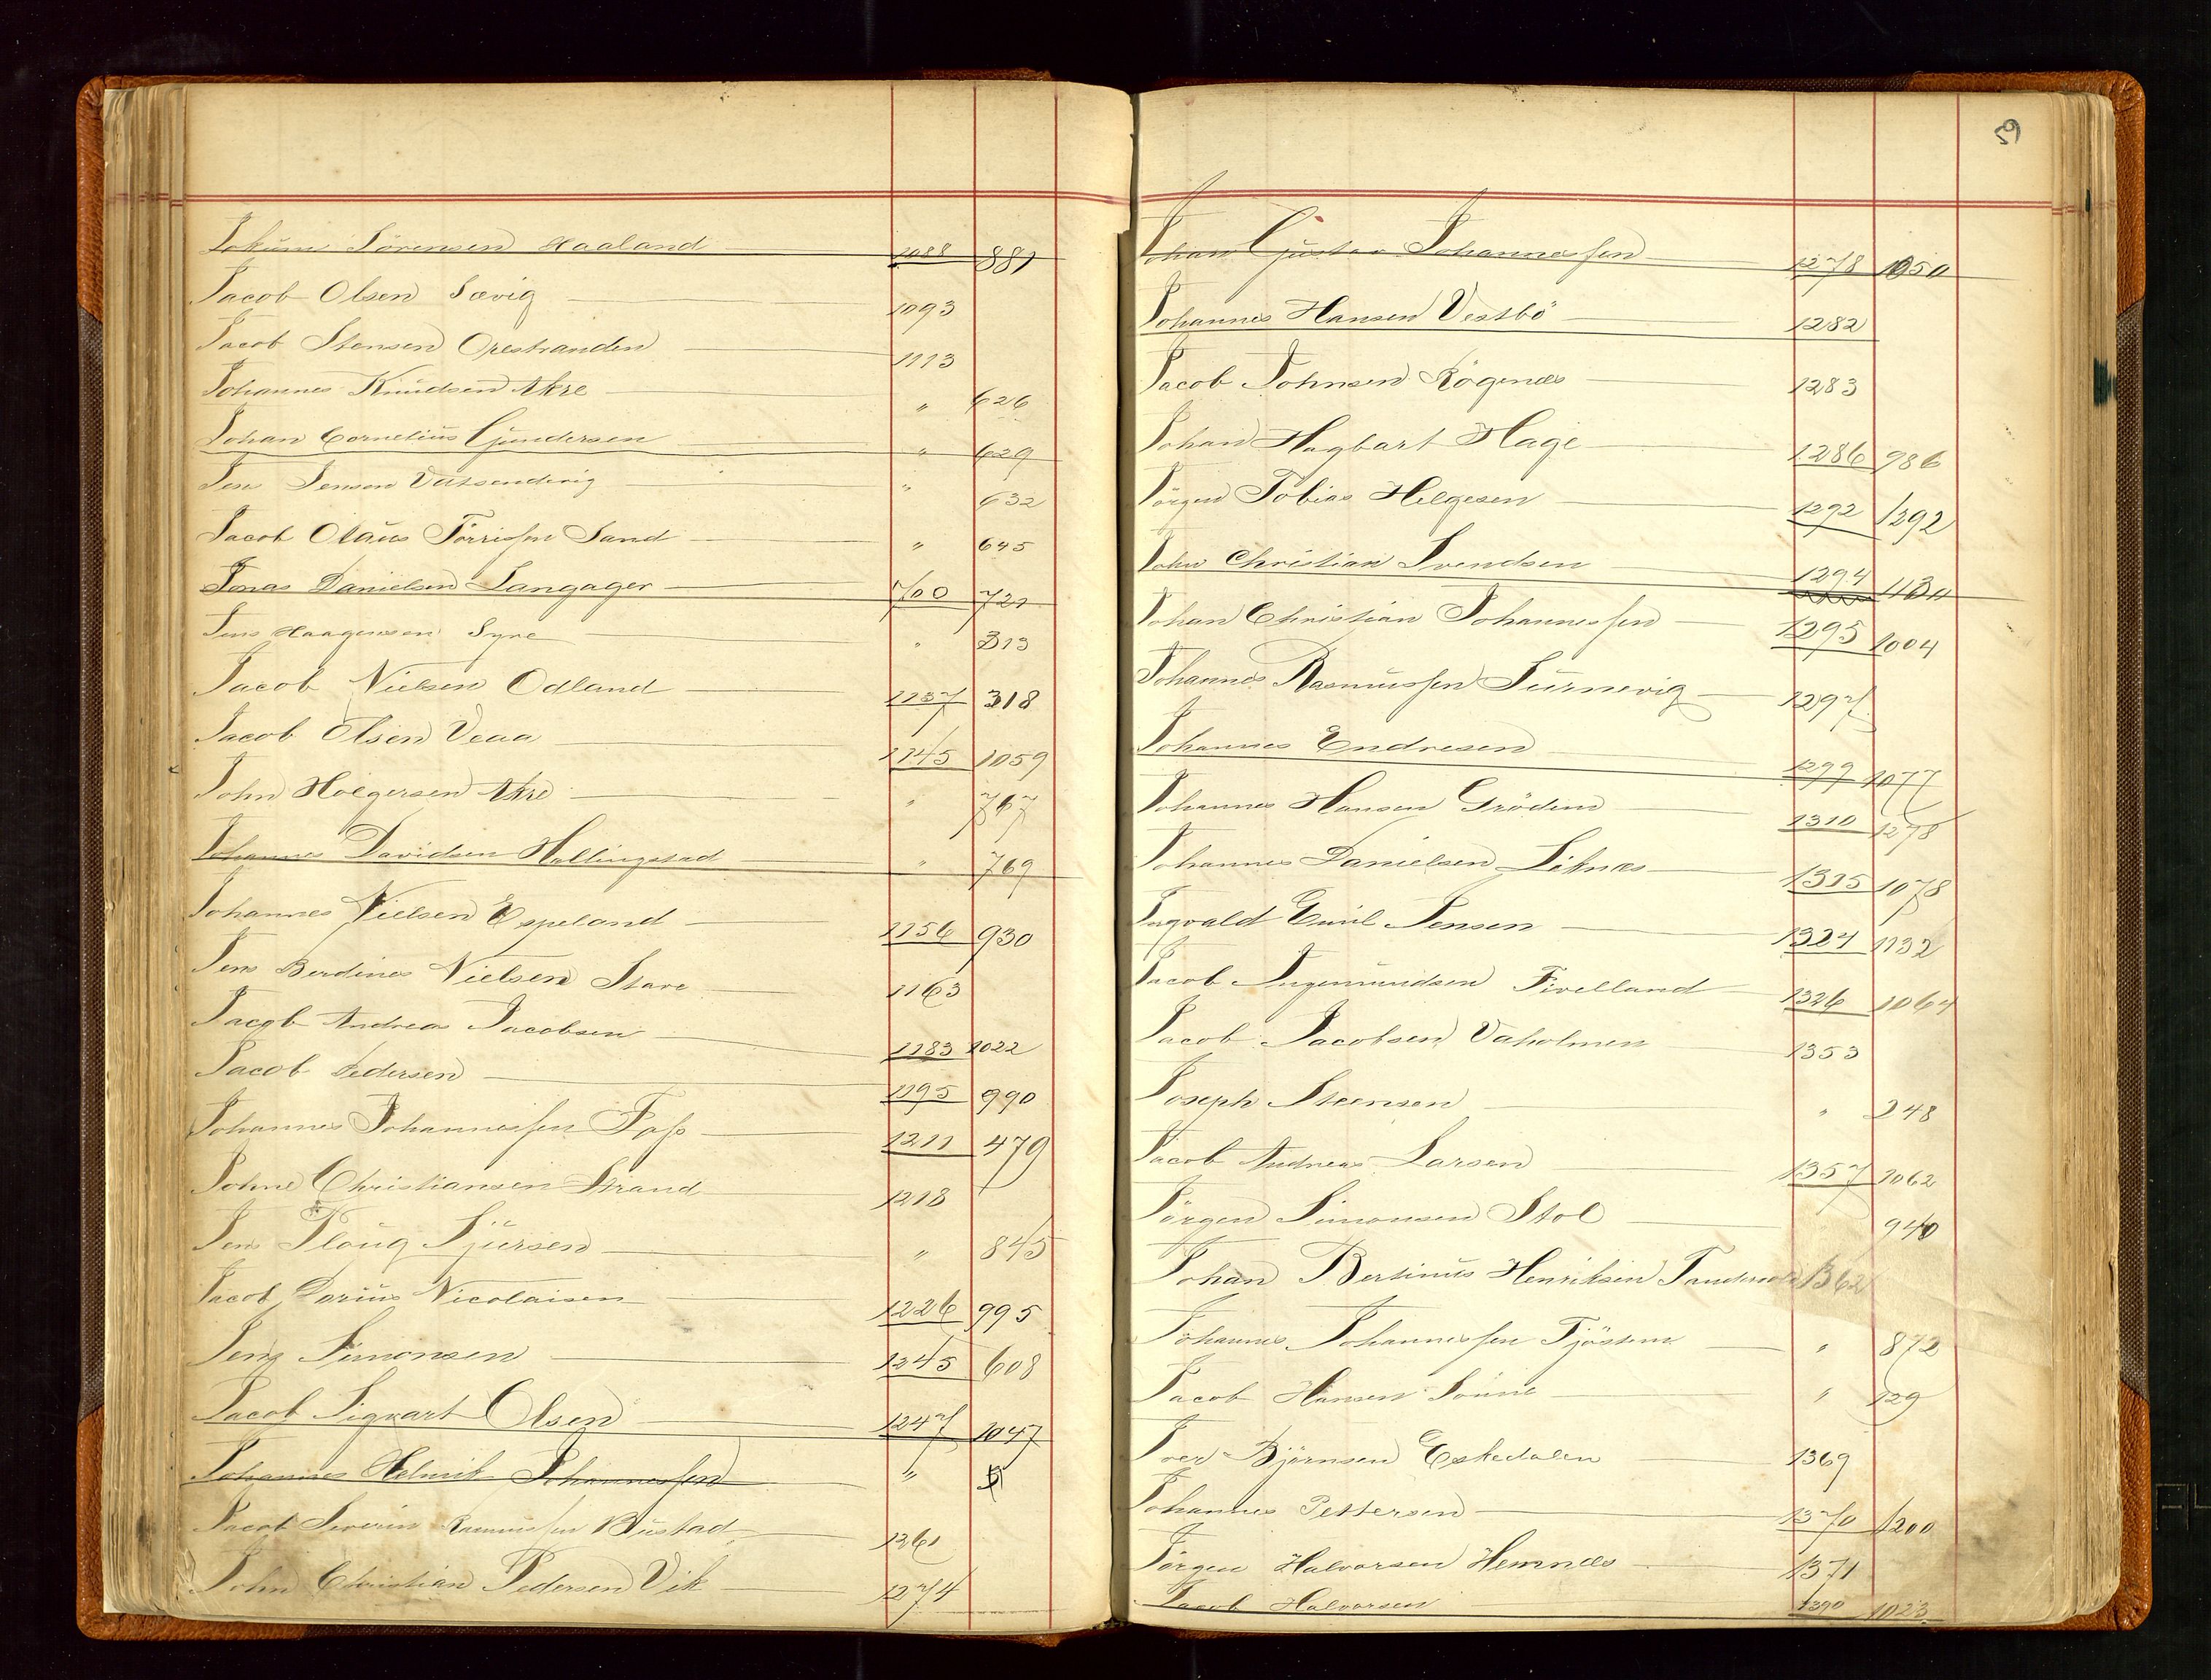 Jokum Sörensen Haaland 1088 881
Jacob Olsen Sævig 1093
Jacob Stensen Opestranden 1113
Johannes Knudsen Akre " 626
Johan Cornelius Gundersen " 629
Jens Jensen Vatsendvig " 632
Jacob Olaus Törrissen Sand " 645
Jonas Danielsen Langager 1100 721
Jens Haagensen Syre " 313
Jacob Nielsen Odland 1137 318
Jacob Olsen Veaa 1145 1059
John Holgersen Akre " 767
Johannes Davidsen Hallingstad " 769
Johannes Nielsen Espeland 1156 930
Jens Berdines Nielsen Stave 1163
Jacob Andreas Jacobsen 1183 1022
Jacob Pedersen 1195 990
Johannes Johannessen Fass 1211 479
John Christiansen Strand 1218
Jens Ploug Sjursen " 845
Jacob Darius Nicolaisen 1226 995
Jens Simonsen 1245 608
Jacob Sigvart Olsen 1247 1047
Johannes Helmik Johannessen "
Jacob Severin Rasmussen Bustad 1261
John Christian Pedersen Vik 1274
59
Johan Gustav Johannessen 1278 1050
Johannes Hansen Vestbö 1282
Jacob Johnsen Rögenæs 1283
Johan Hagbart Hage 1286 986
Jörgen Tobias Helgesen 1292 1292
John Christian Svendsen 1294 1130
Johan Christian Johannessen 1295 1004
Johannes Rasmussen Surnevig 1297
Johannes Endresen 1299 1077
Johannes Hansen Grödem 1310 1278
Johannes Danielsen Liknæs 1315 1078
Ingvald Emil Jensen 1324 1132
Jacob Ingemundsen Fivelland 1326 1064
Jacob Jacobsen Vaholmen 1353
Joseph Steensen " 248
Jacob Andreas Larsen 1357 1062
Jörgen Simonsen Stol " 940
Johan Bertinus Henriksen 1362
Johannes Johannessen Tjöstem " 872
Jacob Hansen Sonne " 129
Iver Björnsen Eskedalen 1369
Johannes Pettersen 1370 1200
Jörgen Halvorsen Hemnæs 1371
Jacob Halvorsen 1390 1023